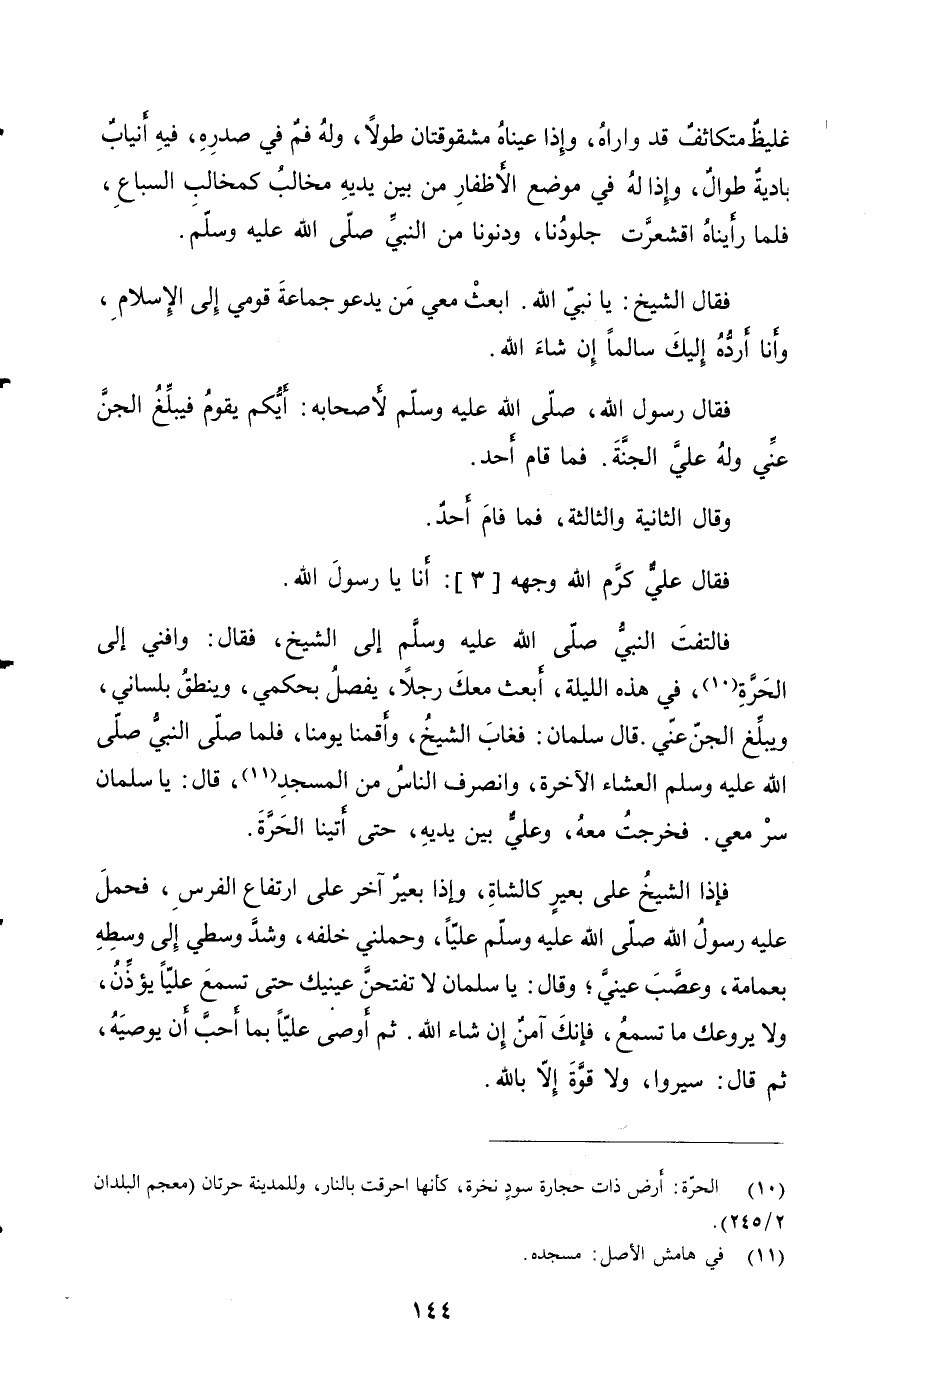 غليظٌ متكاثفٌ قد واراهُ، وإِذا عيناهُ مشقوقتان طولاً، ولهُ فمٌ في صدرِهِ، فيهِ أَنيابٌ
باديةٌ طوالٌ، وإِذا لهُ في موضع الأَظفارِ من بين يديهِ مخالبُ كمخالبِ السباعِ،
فلما رأَيناهُ اقشعرَّت جلودُنا، ودنونا من النبيِّ صلّى الله عليه وسلّم.
فقال الشيخ: يا نبيّ الله. ابعثْ معي مَن يدعو جماعةَ قومي إِلى الإِسلامِ،
وأَنا أَردُّهُ إِليكَ سالماً إِن شاءَ الله.
فقال رسول الله، صلّى الله عليه وسلّم لأَصحابه: أَيُّكم يقومُ فيبلِّغُ الجنَّ
عنِّي ولهُ عليَّ الجنَّةَ. فما قام أَحد.
وقال الثانية والثالثة، فما فامَ أَحدٌ.
فقال عليٌّ كرَّم الله وجهه [٣]: أَنا يا رسولَ الله.
فالتفتَ النبيُّ صلّى الله عليه وسلَّم إلى الشيخ، فقال: وافني إلى
الحَرَّةِ(١٠)، في هذه الليلة، أَبعث معكَ رجلاً، يفصلُ بحكمي، وينطقُ بلساني،
ويبلِّغ الجنّ عنّي. قال سلمان: فغابَ الشيخُ، وأَقمنا يومنا، فلما صلّى النبيُّ صلّى
الله عليه وسلم العشاء الآخرة، وانصرف الناسُ من المسجدِ(١١)، قال: يا سلمان
سرْ معي. فخرجتُ معهُ، وعليٌّ بين يديهِ، حتى أَتينا الحَرَّةَ.
فإذا الشيخُ على بعيرٍ كالشاةِ، وإذا بعيرٌ آخر على ارتفاع الفرسِ، فحملَ
عليه رسولُ الله صلّى الله عليه وسلّم عليّاً، وحملني خلفه، وشدَّ وسطي إلى وسطِهِ
بعمامة، وعصَّبَ عينيَّ؛ وقال: يا سلمان لا تفتحنَّ عينيك حتى تسمعَ عليّاً يؤذِّنُ،
ولا يروعك ما تسمعُ، فإنكَ آمنٌ إن شاء الله. ثم أَوصى عليّاً بما أَحبَّ أَن يوصيَهُ،
ثم قال: سيروا، ولا قوَّةَ إِلّا بالله.
(١٠) الحرّة: أَرض ذات حجارة سودٍ نخرة، كأنها احرقت بالنار، وللمدينة حرتان (معجم البلدان
٢٤٥/٢).
(١١) في هامش الأصل: مسجده.
١٤٤